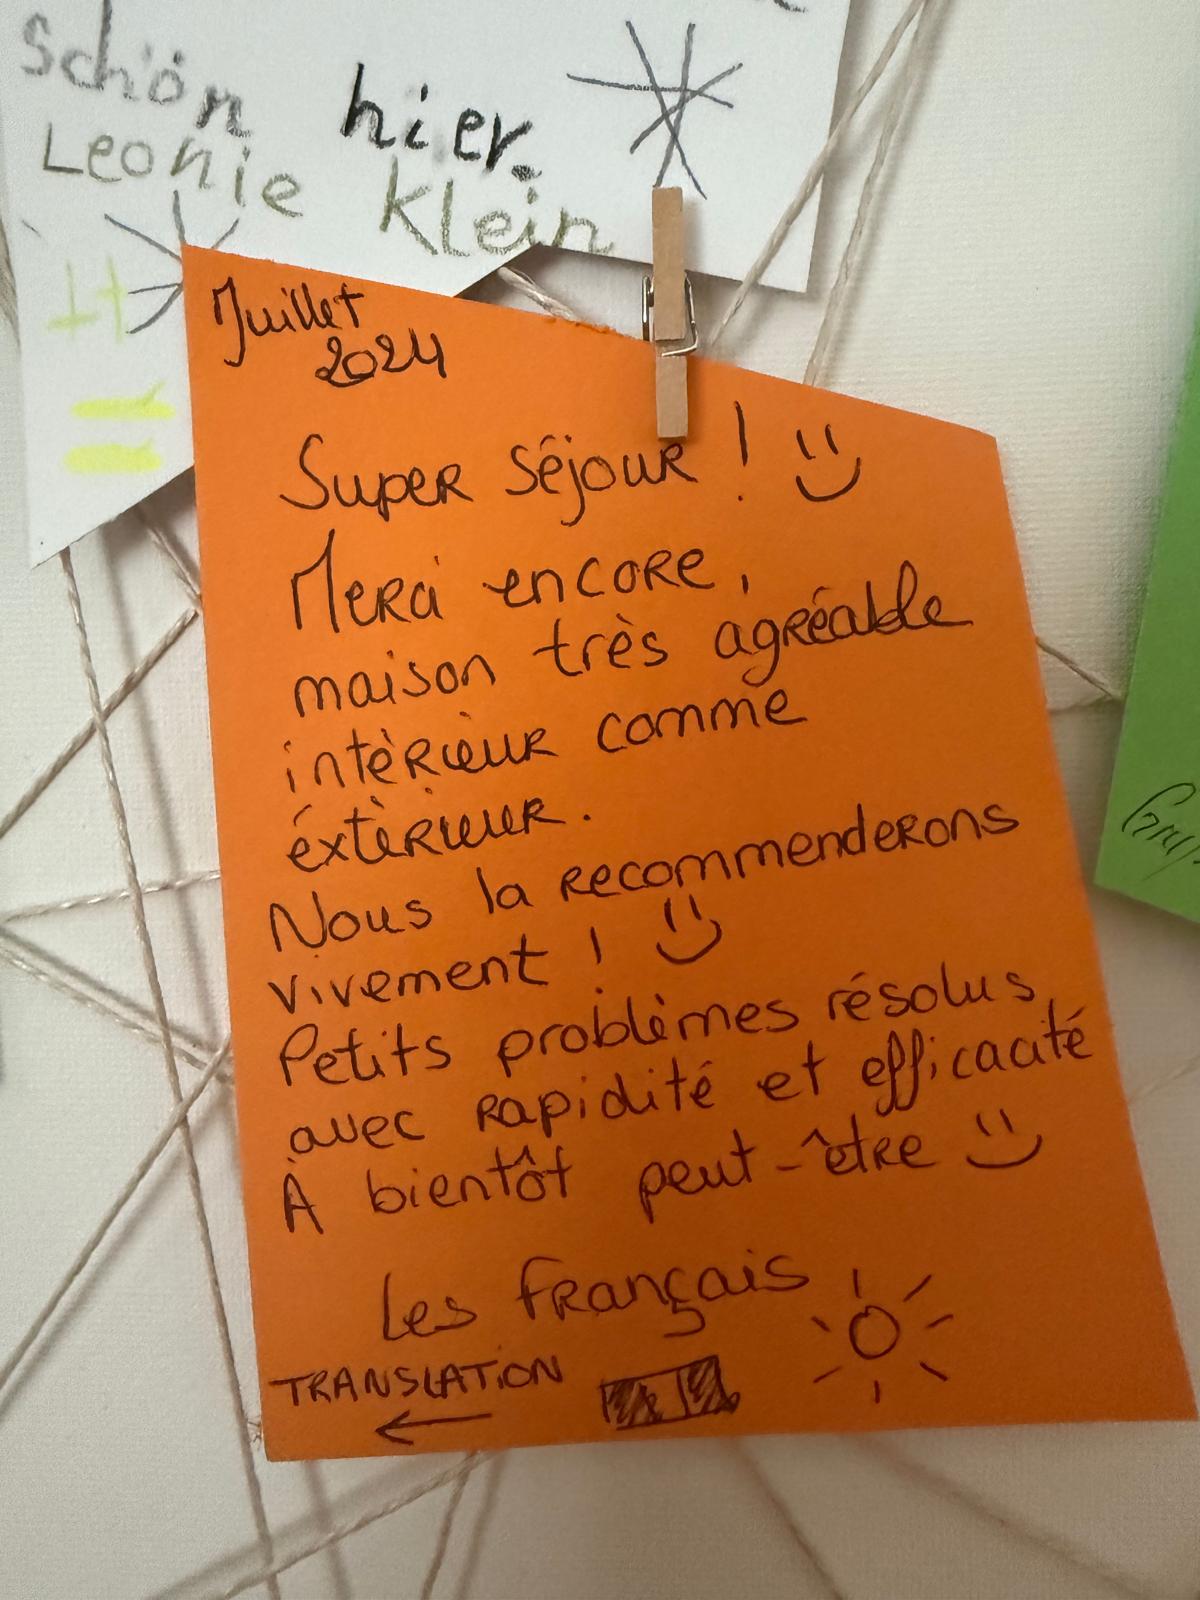 schön hier.
Leonie Klein
Juillet
2024
Super séjour !
Merci encore,
maison très agréable
intèrieur comme
éxtèrieur.
Nous la recommenderons
vivement !
Petits problèmes résolus
avec rapidité et efficacité
À bientôt peut-être
Les Français
TRANSLATION